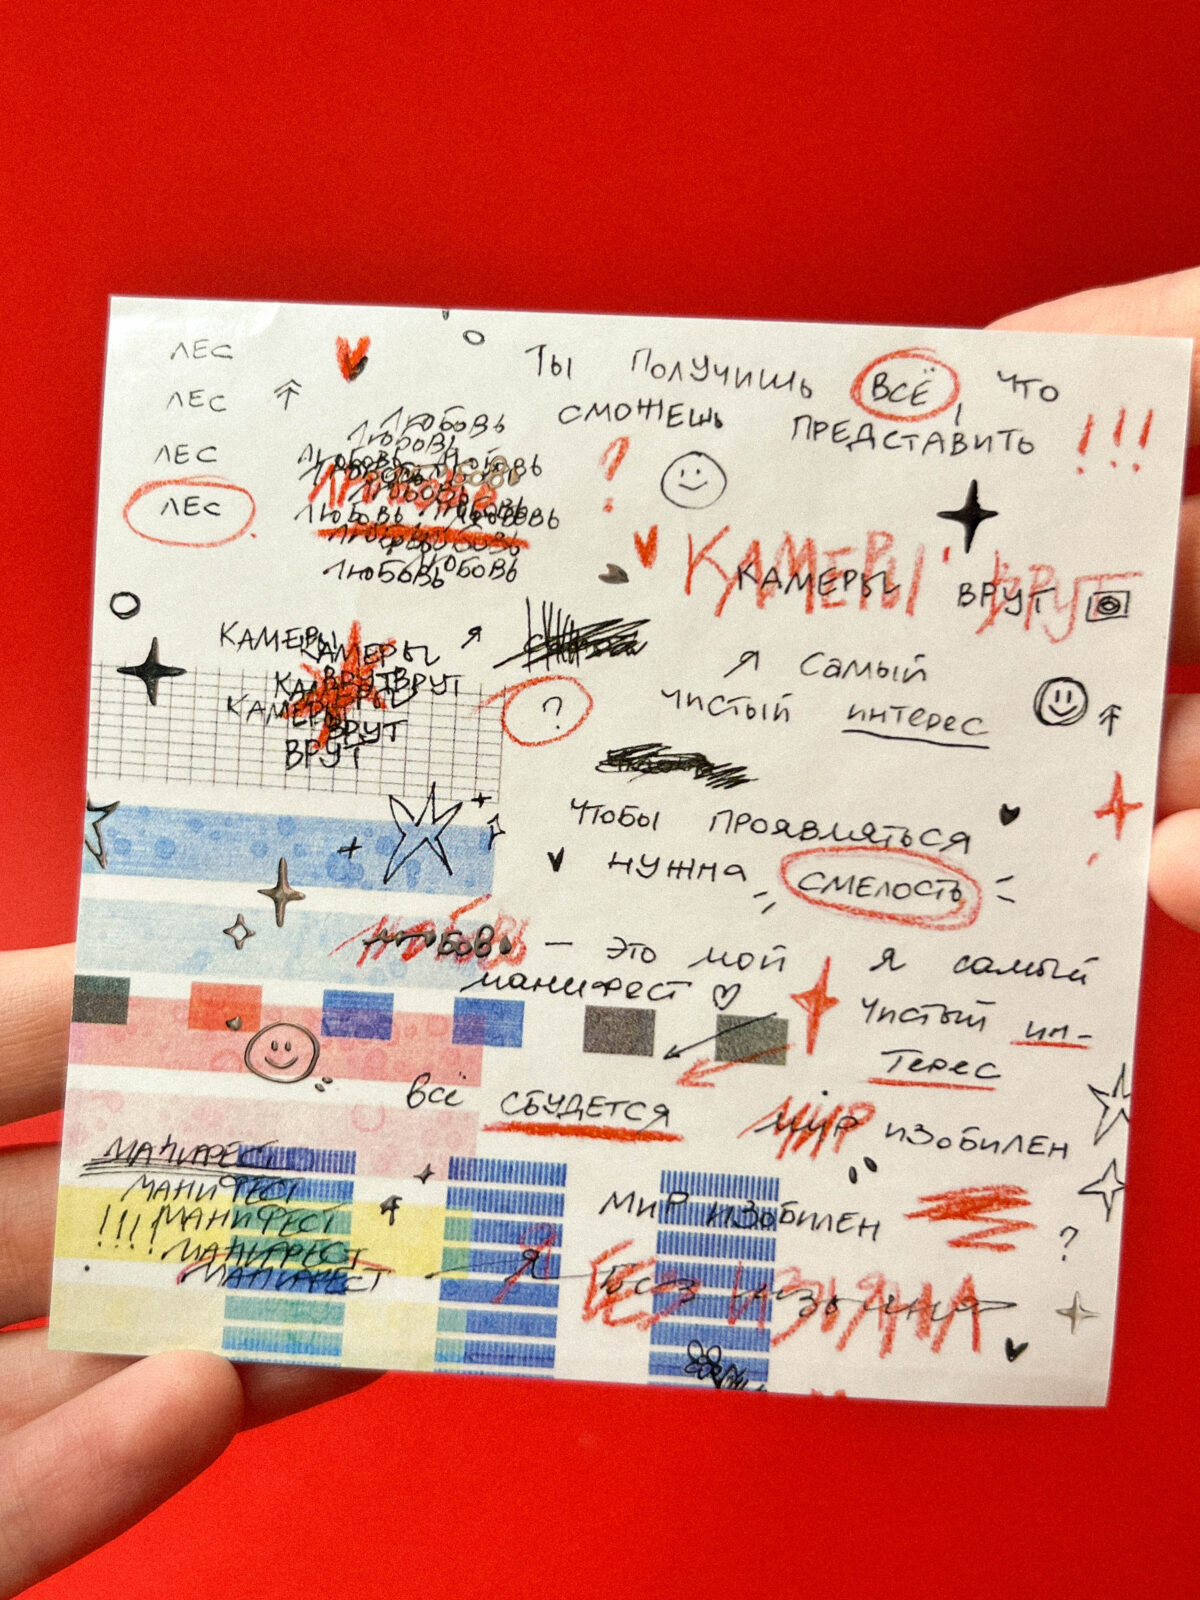 ЛЕС
ЛЕС
ЛЕС
ЛЕС
ЛЮБОВЬ
ЛЮБОВЬ
ЛЮБОВЬ ЛЮБОВЬ
ЛЮБОВЬ
ЛЮБОВЬ ЛЮБОВЬ
ЛЮБОВЬ
ЛЮБОВЬ ЛЮБОВЬ
ТЫ ПОЛУЧИШЬ ВСЁ, ЧТО
СМОЖЕШЬ ПРЕДСТАВИТЬ !!!
?
КАМЕРЫ ВРУТ
КАМЕРЫ ВРУТ
КАМЕРЫ
КАМЕРЫ
ВРУТ ВРУТ
КАМЕРЫ
ВРУТ
ВРУТ
Я
?
Я САМЫЙ
ЧИСТЫЙ ИНТЕРЕС
ЧТОБЫ ПРОЯВЛЯТЬСЯ
НУЖНА СМЕЛОСТЬ
ЛЮБОВЬ — ЭТО МОЙ
МАНИФЕСТ
Я САМЫЙ
ЧИСТЫЙ ИН-
ТЕРЕС
ВСЁ СБУДЕТСЯ
МИР ИЗОБИЛЕН
МИР ИЗОБИЛЕН
?
МАНИФЕСТ
МАНИФЕСТ
!!!! МАНИФЕСТ
МАНИФЕСТ
МАНИФЕСТ
Я БЕЗ ИЗЪЯНА